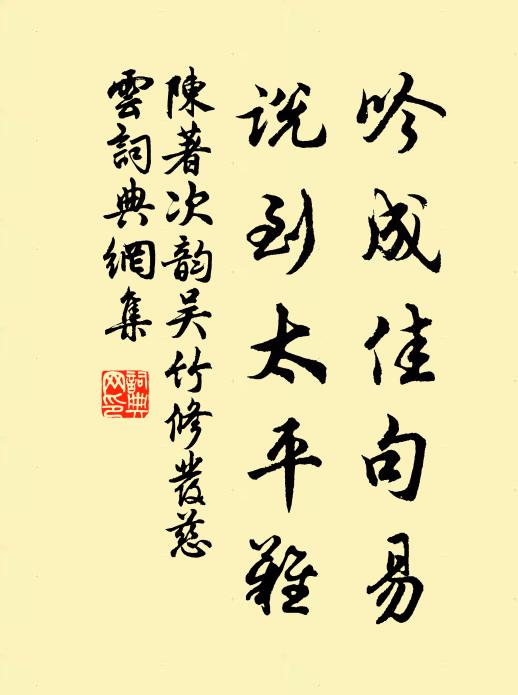 吟成佳句易
說到太平難
陳著次韵吴竹修發慈
雲詞典網集
詞典
网印